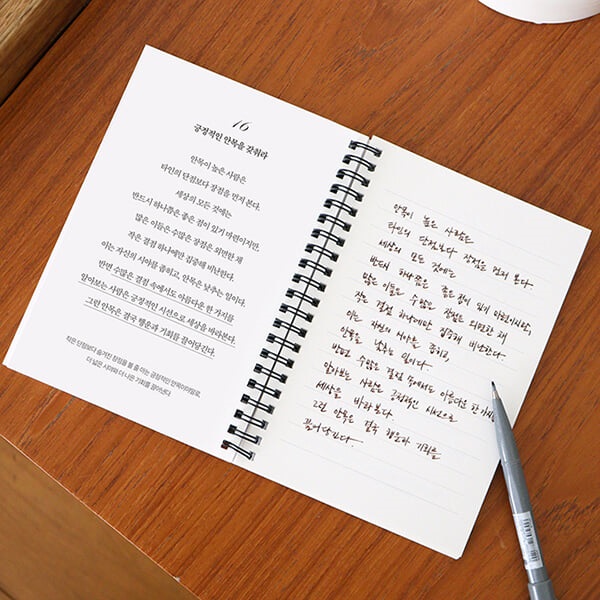 16
긍정적인 안목을 갖춰라
안목이 높은 사람은
타인의 단점보다 장점을 먼저 본다.
세상의 모든 것에는
반드시 하나쯤은 좋은 점이 있기 마련이지만,
많은 이들은 수많은 장점은 외면한 채
작은 결점 하나에만 집중해 비난한다.
이는 자신의 시야를 좁히고, 안목은 낮추는 일이다.
반면 수많은 결점 속에서도 아름다운 한 가지를
알아보는 사람은 긍정적인 시선으로 세상을 바라본다.
그런 안목은 결국 행운과 기회를 끌어당긴다.
작은 단점보다 숨겨진 장점을 볼 줄 아는 긍정적인 안목이야말로,
더 넓은 시야와 더 나은 기회를 끌어낸다.
안목이 높은 사람은
타인의 단점보다 장점을 먼저 본다.
세상의 모든 것에는
반드시 하나쯤은 좋은 점이 있기 마련이지만,
많은 이들은 수많은 장점은 외면한 채
작은 결점 하나에만 집중해 비난한다.
이는 자신의 시야를 좁히고,
안목을 낮추는 일이다.
반면 수많은 결점 속에서도 아름다운 한 가지를
알아보는 사람은 긍정적인 시선으로
세상을 바라본다.
그런 안목은 결국 행운과 기회를
끌어당긴다.